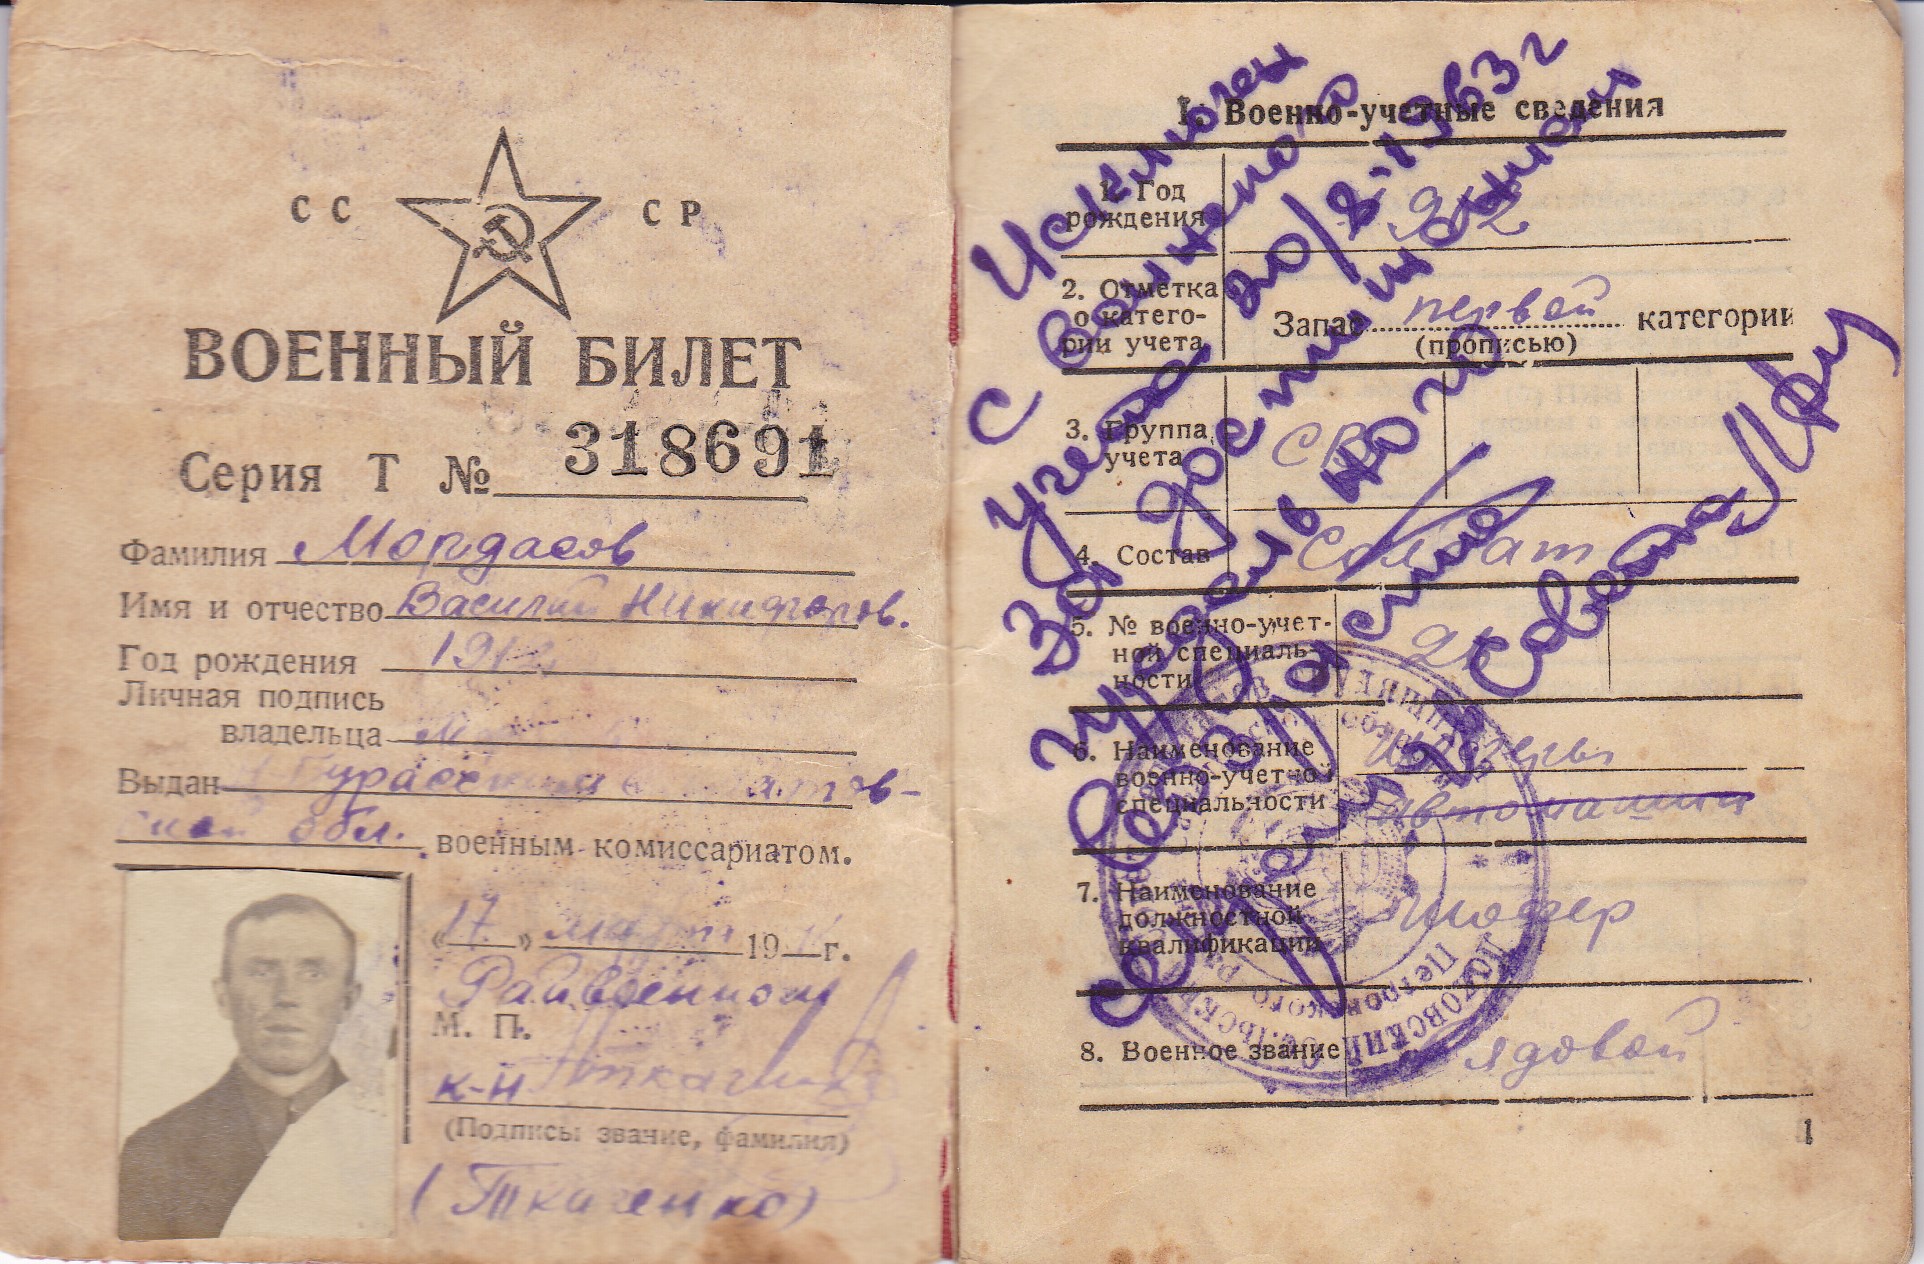 СС СР
ВОЕННЫЙ БИЛЕТ
Серия Т № 318691
Фамилия Мордасов
Имя и отчество Василий Никифоров.
Год рождения 1912
Личная подпись
владельца
Выдан
обл. военным комиссариатом.
«17» марта 19 г.
Райвоенком
М. П.
к-н Ткаченко
(Подпись, звание, фамилия)
(Ткаченко)
I. Военно-учетные сведения
1. Год
рождения 1912
2. Отметка
о катего-
рии учета
Запас первой категории
(прописью)
3. Группа
учета СВ
4. Состав Солдат
5. № военно-учет-
ной специаль-
ности
6. Наименование
военно-учетной
специальности
Шоферы
автомашин
7. Наименование
должностной
квалификации
Шофер
8. Военное звание Рядовой
1
Исключен
с военного
учета 20/2-1963 г
За достижением
предельного
возраста
Секретарь с/Совета